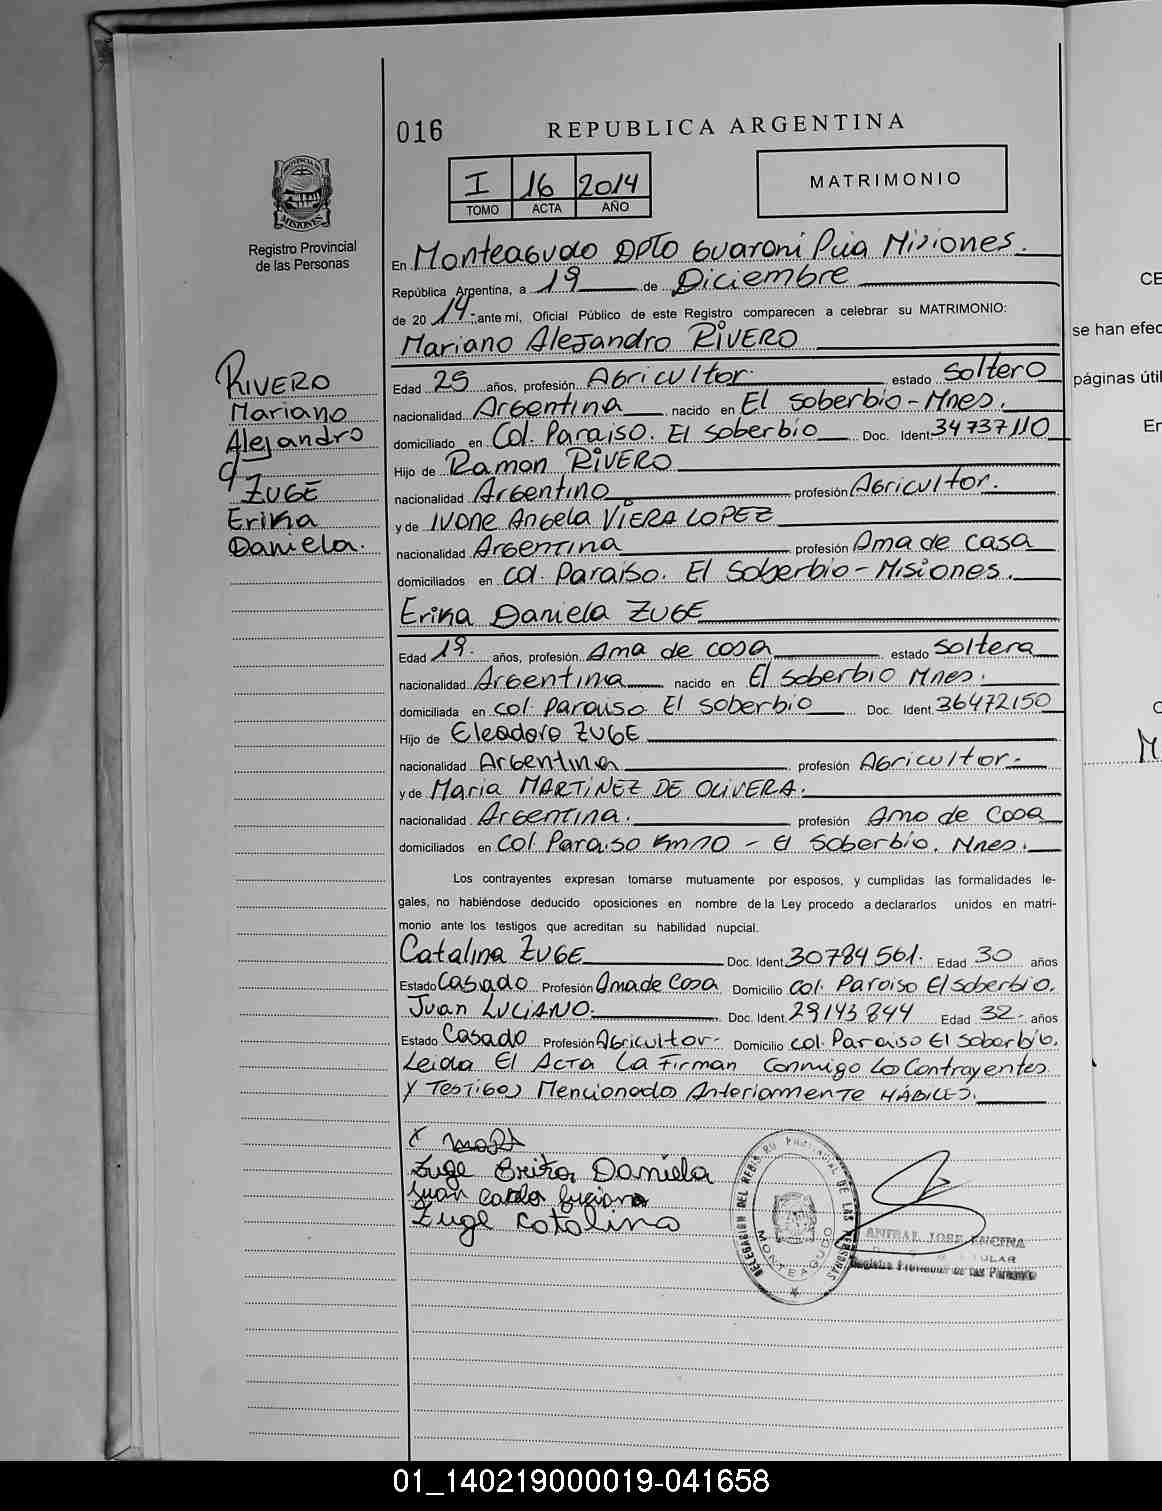 016
REPUBLICA ARGENTINA
I 16 2014
TOMO ACTA AÑO
MATRIMONIO
PROVINCIA DE
MISIONES
Registro Provincial
de las Personas
En Monteagudo DPTO Guarani Pcia Misiones.
República Argentina, a 19 de Diciembre
de 20 14, ante mi, Oficial Público de este Registro comparecen a celebrar su MATRIMONIO:
Mariano Alejandro RIVERO
RIVERO
Mariano
Alejandro
c/
ZUGE
Erika
Daniela.
Edad 25 años, profesión Agricultor. estado Soltero
nacionalidad Argentina nacido en El Soberbio-Mnes.
domiciliado en Col. Paraiso. El Soberbio Doc. Ident. 34737110
Hijo de Ramon RIVERO
nacionalidad Argentino profesión Agricultor.
y de IVONE Angela VIERA LOPEZ
nacionalidad Argentina profesión Ama de casa
domiciliados en Col. Paraiso. El Soberbio-Misiones.
Erika Daniela ZUGE
Edad 19. años, profesión Ama de casa estado Soltera
nacionalidad Argentina nacido en El Soberbio Mnes.
domiciliada en Col Paraiso El Soberbio Doc. Ident. 36472150
Hijo de Eleodoro ZUGE
nacionalidad Argentina profesión Agricultor.
y de Maria MARTINEZ DE OLIVERA.
nacionalidad Argentina. profesión Ama de Casa
domiciliados en Col Paraiso Km10 - El Soberbio. Mnes.
Los contrayentes expresan tomarse mutuamente por esposos, y cumplidas las formalidades le-
gales, no habiéndose deducido oposiciones en nombre de la Ley procedo a declararlos unidos en matri-
monio ante los testigos que acreditan su habilidad nupcial.
Catalina ZUGE Doc. Ident. 30784561. Edad 30 años
Estado Casado Profesión Ama de Casa Domicilio Col. Paraiso El Soberbio.
Juan LUCIANO. Doc. Ident. 29143844 Edad 32- años
Estado Casado Profesión Agricultor- Domicilio Col. Paraiso El Soberbio.
Leida El Acta La Firman Conmigo Los Contrayentes
Y Testigos Mencionados Anteriormente HÁBILES.
Zuge Erika Daniela
Juan Carlos Luciano
Zuge Catalina
DELEGACION DEL REGISTRO PROVINCIAL DE LAS PERSONAS
MONTEAGUDO
ANIBAL JOSE ENCINA
Registro Provincial de las Personas
CE
se han efec
páginas útil
En
C
M
01_140219000019-041658